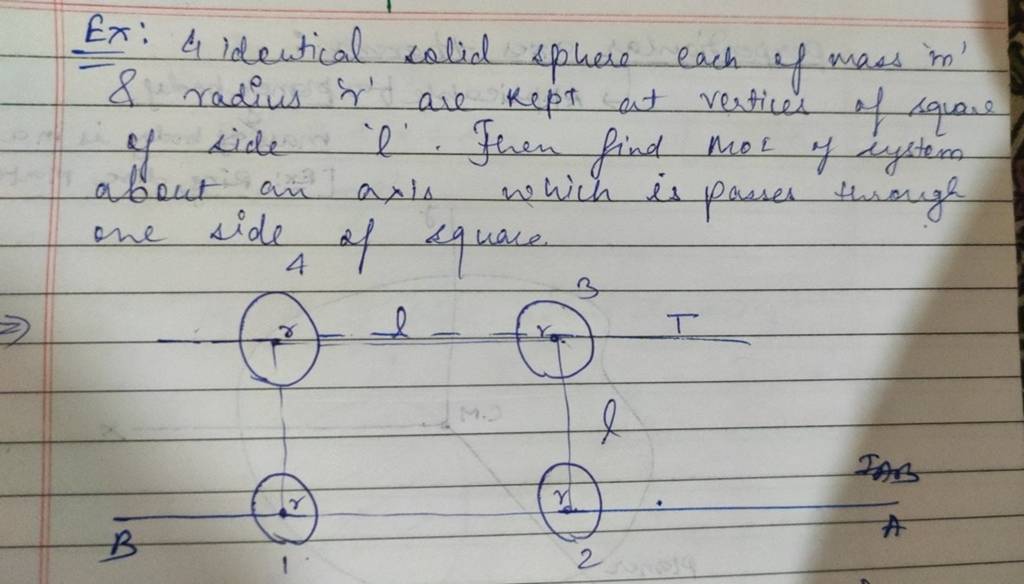 Ex: 4 identical solid sphere each of mass 'm'
& radius 'r' are kept at vertices of square
of side 'l'. Then find MOI of system
about an axis which is passes through
one side of square.
4 3
⇒ r l r T
l
C.M
I_AB
r r
B 1 2 A